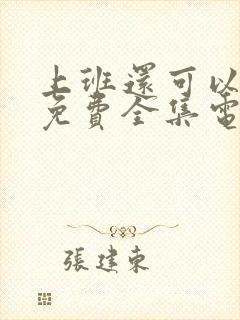 上班還可以
免費全集電
張建東